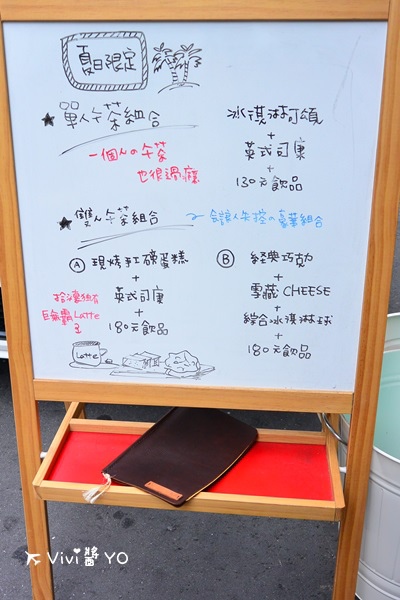 夏日限定
★單人午茶組合
一個人の午茶
也很過癮
冰淇淋可頌
+
英式司康
+
130元飲品
★雙人午茶組合
~會讓人失控の豪華組合
Ⓐ 現烤手工磅蛋糕
+
英式司康
+
180元飲品
巨無霸Latte
Latte
Ⓑ 經典巧克力
+
雪藏 CHEESE
+
綜合冰淇淋球
+
180元飲品
Vivi醬YO